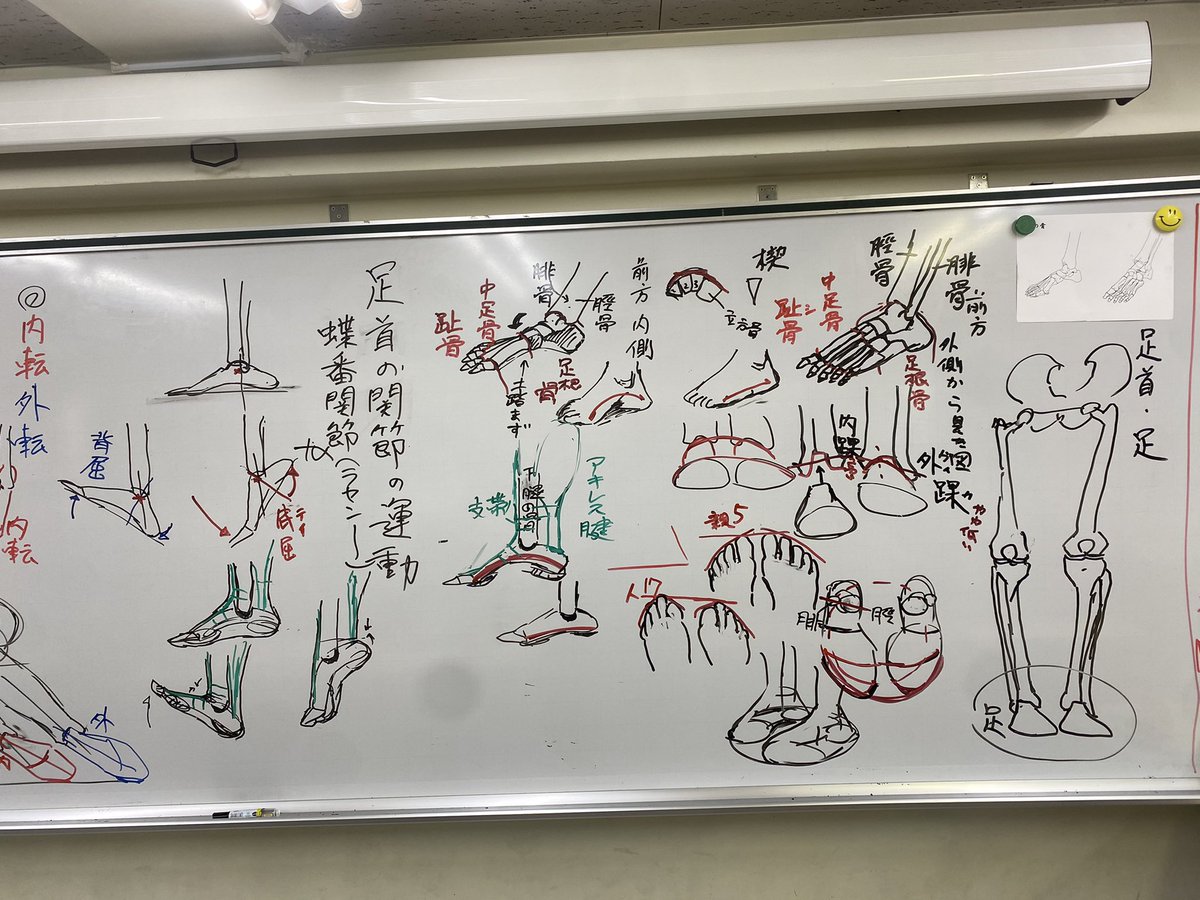 足首・足
前方
外側から見た図
脛骨
腓骨
中足骨
趾骨
シ
足根骨
楔
1 2 3
立方骨
内踝
外踝
やや低い
足
前方内側
腓骨
脛骨
中足骨
趾骨
足根骨
土踏まず
親5
人17
腓
脛
アキレス腱
支帯
足首の関節の運動
蝶番関節(ラセン)
背屈
底屈
テイ
②内転外転
内転
外